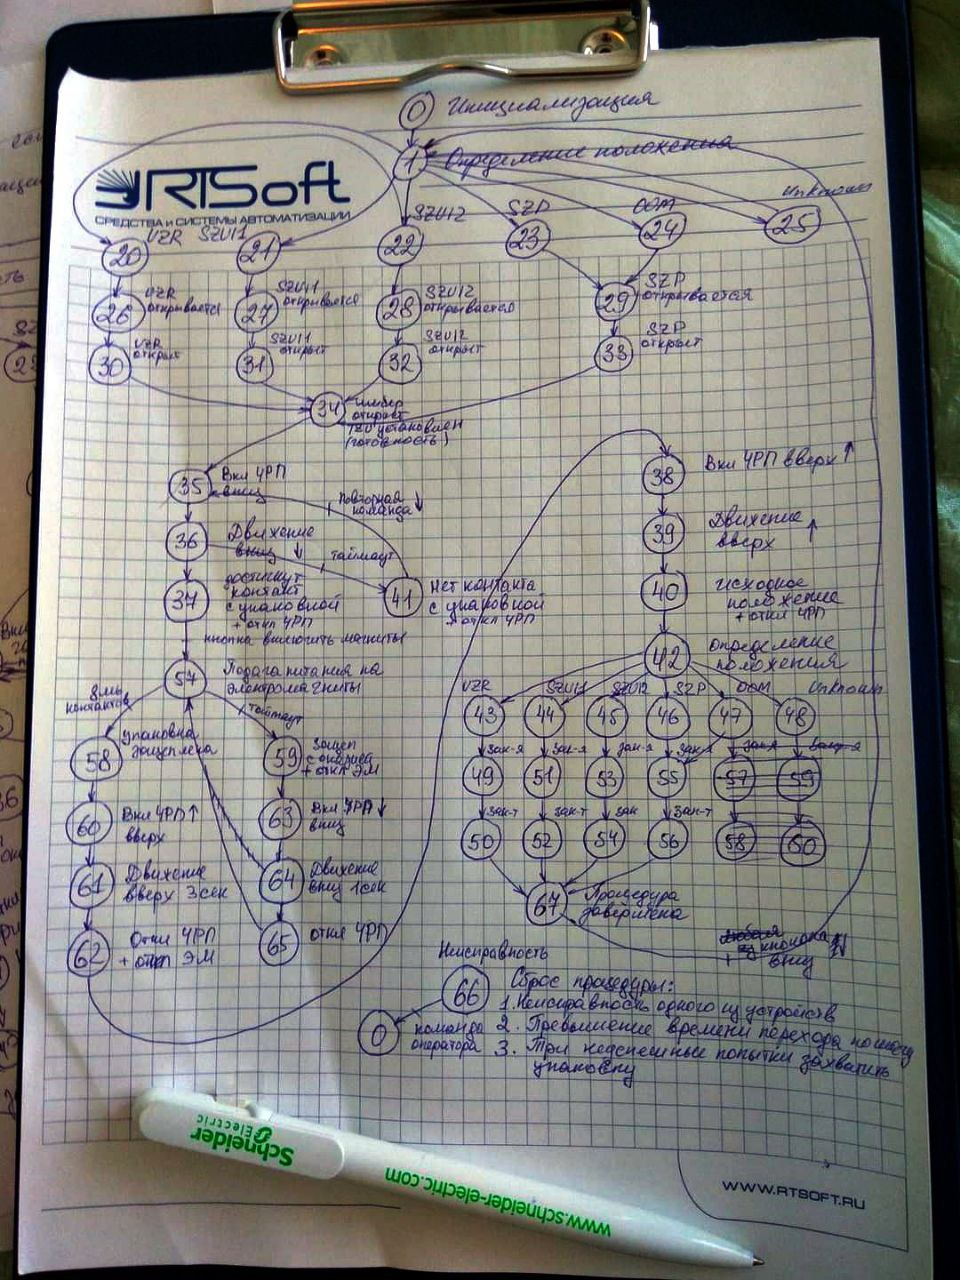 0 Инициализация
1 Определение положения
RTSoft
СРЕДСТВА И СИСТЕМЫ АВТОМАТИЗАЦИИ
VZR SZUI1 SZUI2 SZP OOM Unknown
20 21 22 23 24 25
26 VZR открывается
27 SZUI1 открывается
28 SZUI2 открывается
29 SZP открывается
30 VZR открыт
31 SZUI1 открыт
32 SZUI2 открыт
33 SZP открыт
34 шибер
открыт
установлен
(готовность)
35 Вкл ЧРП
вниз
Повторная
команда ↓
36 Движение
вниз ↓
таймаут
37 достигнут
контакт
с упаковкой
+ откл ЧРП
41 Нет контакта
с упаковкой
+ откл ЧРП
кнопка включить магниты
57 Подача питания на
электромагниты
контактов
таймаут
58 упаковка
зацеплена
59 Зацеп
+ откл ЭМ
60 Вкл ЧРП ↑
вверх
63 Вкл ЧРП ↓
вниз
61 Движение
вверх 3 сек
64 Движение
вниз 1 сек
62 Откл ЧРП
+ откл ЭМ
65 откл ЧРП
38 Вкл ЧРП вверх ↑
39 Движение
вверх ↑
40 исходное
положение
+ откл ЧРП
42 Определение
положения
VZR SZUI1 SZUI2 SZP OOM Unknown
43 44 45 46 47 48
зак-я зак-я зак-я зак-я зак-я зак-я
49 51 53 55 57 59
зак-т зак-т зак зак-т
50 52 54 56 58 60
67 Процедура
завершена
кнопка
+ вниз
Неисправность
66 Сброс процедуры:
0 команда
оператора
1. Неисправность одного из устройств
2. Превышение времени перехода по шагу
3. Три неуспешные попытки захватить
упаковку
Schneider
Electric
www.schneider-electric.com
WWW.RTSOFT.RU